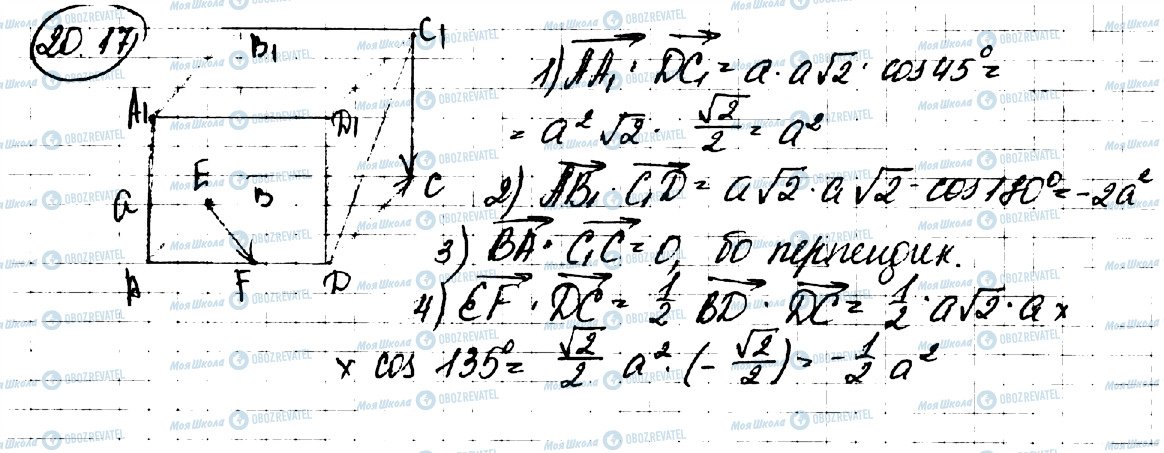 20.17)
B₁ C₁
A₁ D₁
E B C
a
A F D
1) AA₁ · DC₁ = a · a√2 · cos 45° =
= a²√2 · √2/2 = a²
2) AB₁ · C₁D = a√2 · a√2 · cos 180° = -2a²
3) BA · C₁C = 0, бо перпендик.
4) EF · DC = 1/2 BD · DC = 1/2 · a√2 · a ×
× cos 135° = √2/2 a² · (-√2/2) = -1/2 a²
Моя Школа OBOZREVATEL